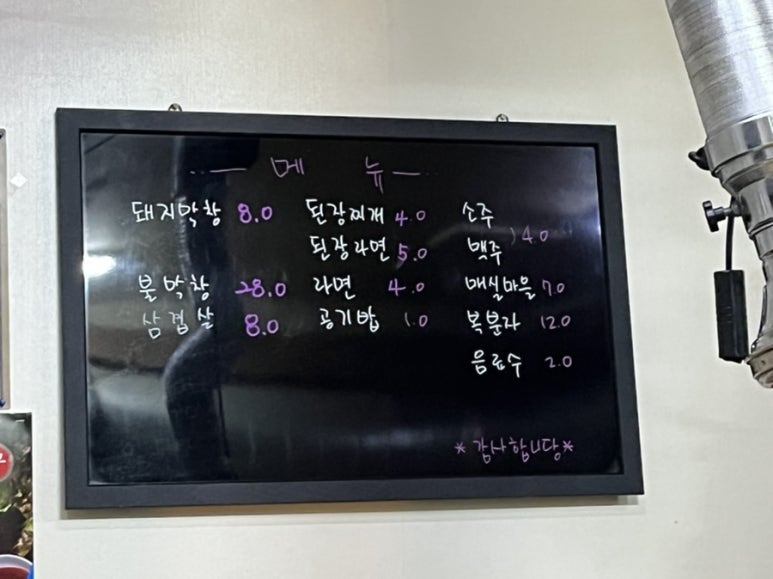 메 뉴
돼지막창 8.0
불막창 28.0
삼겹살 8.0
된장찌개 4.0
된장라면 5.0
라면 4.0
공기밥 1.0
소주
맥주 )4.0
매실마을 7.0
복분자 12.0
음료수 2.0
*감사합니당*